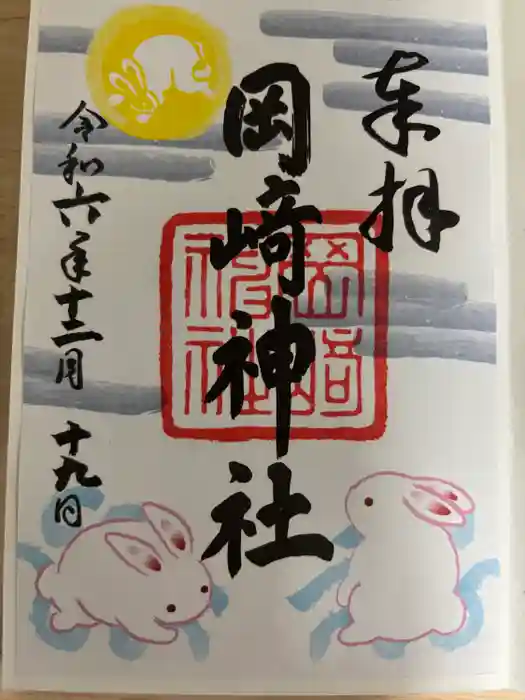 奉拝
岡崎神社
岡崎神社
令和六年十二月 十九日